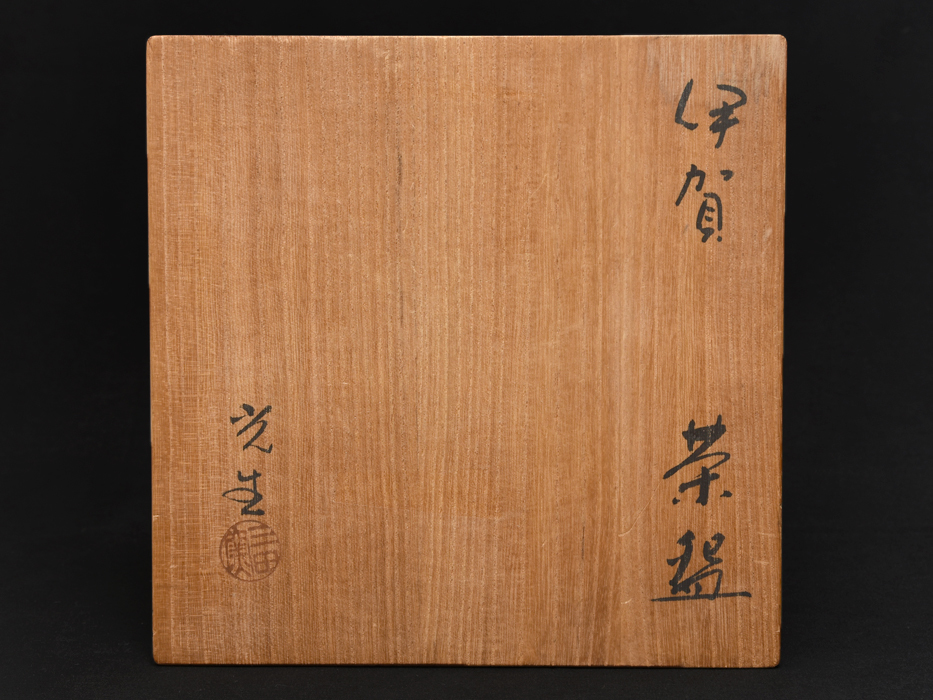 伊賀
茶盌
光生